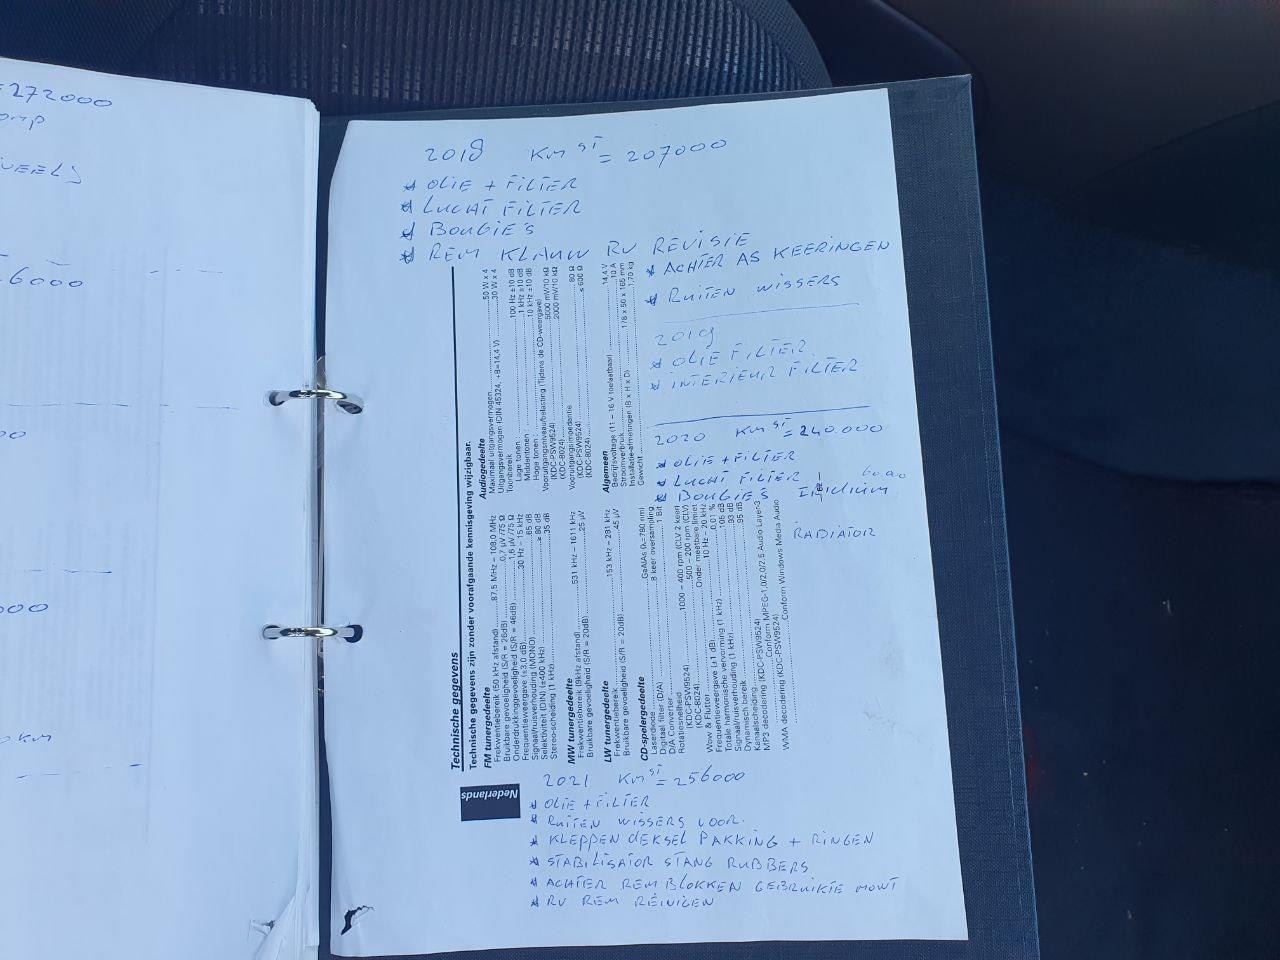 =272000
6000
000
KM
2018 KM ST = 207000
* OLIE + FILTER
* LUCHT FILTER
* BOUGIE'S
* REM KLAUW RV REVISIE
* ACHTER AS KEERINGEN
* RUITEN WISSERS
2019
* OLIE FILTER
* INTERIEUR FILTER
2020 KM ST = 240.000
* OLIE + FILTER
* LUCHT FILTER
* BOUGIE'S Iridium 60.000
RADIATOR
Technische gegevens
Technische gegevens zijn zonder voorafgaande kennisgeving wijzigbaar.
FM tunergedeelte
Frekwentiebereik (50 kHz afstand) 87,5 MHz – 108,0 MHz
Bruikbare gevoeligheid (S/R = 26dB) 0,7 µV /75 Ω
Onderdrukkinggevoeligheid (S/R = 46dB) 1,6 µV /75 Ω
Frequentieweergave (±3,0 dB) 30 Hz – 15 kHz
Signaal/ruisverhouding (MONO) 65 dB
Selektiviteit (DIN) (±400 kHz) ≥ 80 dB
Stereo-scheiding (1 kHz) 35 dB
MW tunergedeelte
Frekwentiebereik (9kHz afstand) 531 kHz – 1611 kHz
Bruikbare gevoeligheid (S/R = 20dB) 25 µV
LW tunergedeelte
Frekwentiebereik 153 kHz – 281 kHz
Bruikbare gevoeligheid (S/R = 20dB) 45 µV
CD-spelergedeelte
Laserdiode GaAlAs (λ=780 nm)
Digitaal filter (D/A) 8 keer oversampling
D/A Converter 1 Bit
Rotatiesnelheid
(KDC-PSW9524) 1000 – 400 rpm (CLV 2 keer)
(KDC-8024) 500 – 200 rpm (CLV)
Wow & Flutter Onder meetbare limiet
Frequentieweergave (±1 dB) 10 Hz – 20 kHz
Totale harmonische vervorming (1 kHz) 0,01 %
Signaal/ruisverhouding (1 kHz) 105 dB
Dynamisch bereik 93 dB
Kanaalscheiding 95 dB
MP3 decodering (KDC-PSW9524) Conform MPEG-1,0/2,0/2,5 Audio Layer-3
WMA decodering (KDC-PSW9524) Conform Windows Media Audio
Audiogedeelte
Maximaal uitgangsvermogen 50 W x 4
Uitgangsvermogen (DIN 45324, +B=14,4 V) 30 W x 4
Toonbereik
Lage tonen: 100 Hz ±10 dB
Middentonen: 1 kHz ±10 dB
Hoge tonen: 10 kHz ±10 dB
Vooruitgangsniveau/belasting (Tijdens de CD-weergave)
(KDC-PSW9524) 5000 mV/10 kΩ
(KDC-8024) 2000 mV/10 kΩ
Vooruitgangsimpedantie
(KDC-PSW9524) 80 Ω
(KDC-8024) ≤ 600 Ω
Algemeen
Bedrijfsvoltage (11 – 16 V toelaatbaar) 14,4 V
Stroomverbruik 10 A
Installatie-afmetingen (B x H x D) 178 x 50 x 165 mm
Gewicht 1,70 kg
Nederlands
2021 KM ST = 256000
* OLIE + FILTER
* RUITEN WISSERS VOOR.
* KLEPPEN dEKSEL PAKKING + RINGEN
* STABILISATOR STANG RUBBERS
* ACHTER REM BLOKKEN GEBRUIKTE MONT
* RV REM REINIGEN